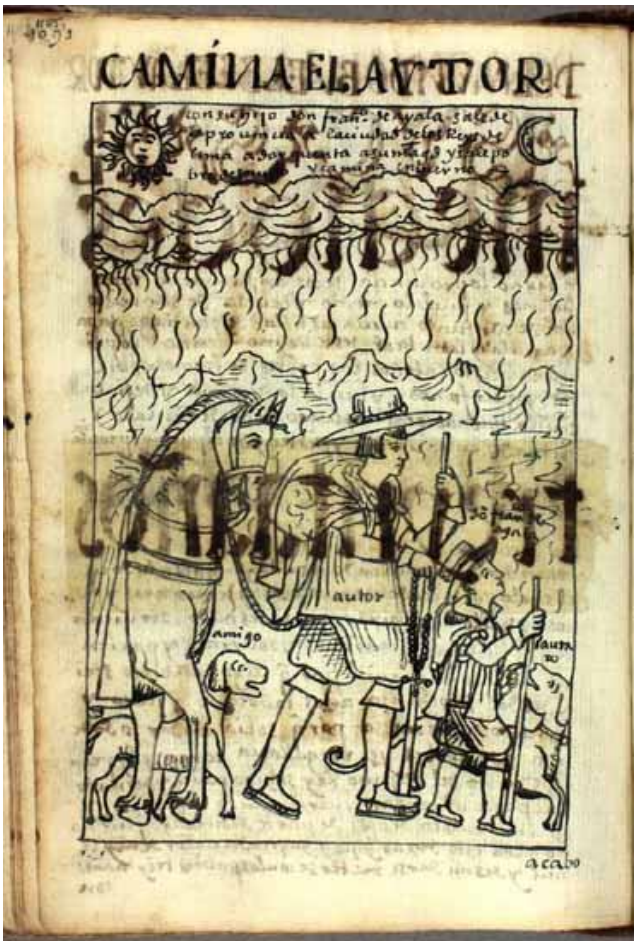 CAMÍNA EL AVTOR
con su hijo don fran.co de ayala sale de
la prouincia a la ciudad de los Reys de
lima a dar quenta a su mag.d y sale po
bre y camina enbierno
dõ fran.co de
ayala
autor
amigo
lauta
ro
acabo